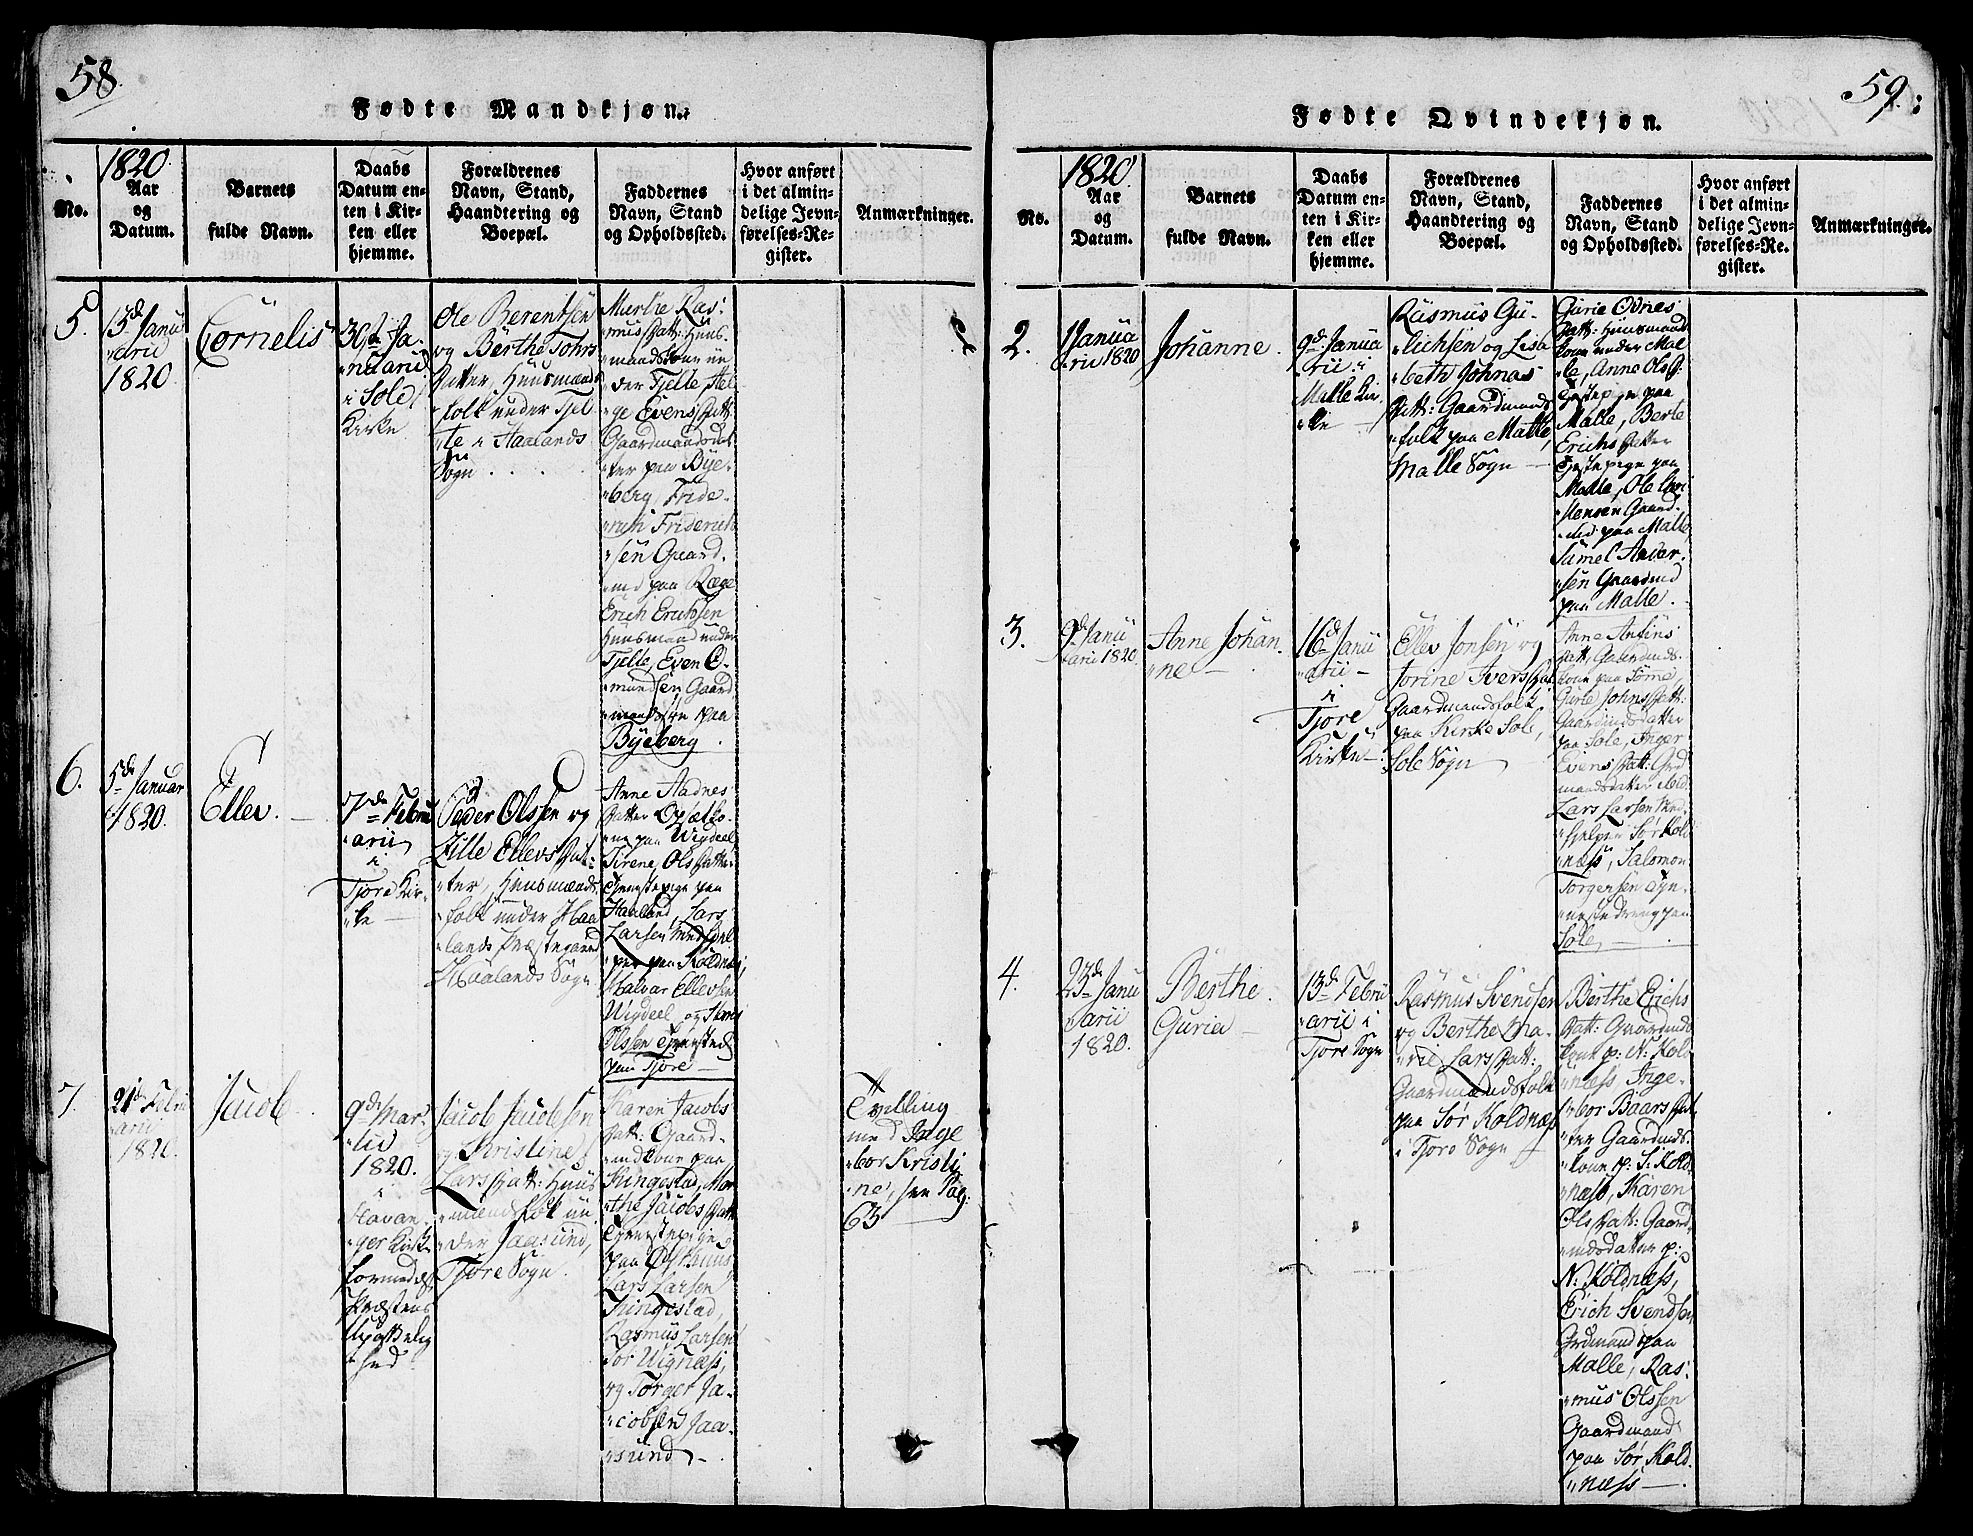 58.
Fødte Mandkjøn.
1820.
No.
Aar
og
Datum.
Barnets
fulde Navn.
Daabs
Datum en-
ten i Kir-
ken eller
hjemme.
Forældrenes
Navn, Stand,
Haandtering og
Boepæl.
Faddernes
Navn, Stand
og Opholdssted.
Hvor anført
i det almin-
delige Jevn-
førelses-Re-
gister.
Anmærkninger.
5.
Janu
arii
1820
Cornelis
30te Ja-
nuarii
i Sole
Kirke
Ole Berentsen
og Berthe Tohrs
Datter, Huusmænds
folk under Tjel
te i Haalands
Sogn
Marthe Ras-
mus Datt: Huus
mandskone un
der Tjelte, Hel
ge Evens Datt:
Gaardmandsdat
ter paa Bye-
berg, Fride-
rich Friderich
sen Gaard-
md paa Ræge
Erich Erichsen
Huusmand under
Tjelte, Even O-
mundsen Gaard
mandssøn paa
Byeberg.
6.
5de Januar
1820.
Ellev.
7de Febru
arii
i
Tjora Kir-
ke
Peder Olssen og
Zille Ellevs Dat-
ter, Huusmænds
folk under Haa
lands Præstegaard
Haalands Sogn
Anne Aadnes
Datter
paa Wigdeel
Sirene Ols Datter
Tjenestepige paa
Haaland, Lars
Larsen Medhjel
per paa Koldnæs,
Halvar Ellevsen
Wigdeel og
Olssen Tjenested
paa Tjore
7.
21de Febru
arii
1820.
Jacob
9de Mar-
tii
1820.
i
Stavan-
ger Kirke
formedelst
Præstens
Upasselig
hed
Jacob Jacobsen
og Kristine
Lars Datt: Huus
mændsfolk un
der Jaasund,
Tjore Sogn.
Karen Jacobs
Datt: Gaard-
mdkone paa
Ringestad, Mar
the Jacobs Datt
Tjenestepige
paa Østhuus
Lars Larsen
Ringestad,
Rasmus Larsen
Sør Wignæss,
og Torger Ja-
cobsen Jaa-
sund.
Tvilling
med Inge
bor Kristi
ne, see Pag:
63
59.
Fødte Qvindekjøn.
1820.
No.
Aar
og
Datum.
Barnets
fulde Navn.
Daabs
Datum en-
ten i Kir-
ken eller
hjemme.
Forældrenes
Navn, Stand,
Haandtering og
Boepæl.
Faddernes
Navn, Stand
og Opholdssted.
Hvor anført
i det almin-
delige Jevn-
førelses-Re-
gister.
Anmærkninger.
2.
1 Janua
rii 1820
Johanne.
9de Janua
rii i
Malle Kir
ke
Rasmus Gu-
lichsen og Lisa
beth Johnas
Datt: Gaardmands
folk paa Malle,
Malle Sogn
Gurie Odnes
Datt: Huusmands
kone under Mal
le, Anne Ols D.
Tjenstepige paa
Malle, Berte
Erichs Datter
Tjenstepige paa
Malle, Ole Chri
stensen Gaard-
md paa Malle
Samel Ander-
sen Gaardmd
paa Malle.
3.
9de Janu
arii 1820.
Anne Johan-
ne
16de Janu
arii
i
Tjore
Kirke
Ellev Jonsen og
Jorine Ivers Dat
Gaardmandsfolk
paa Kirke Sole,
Sole Sogn
Anne Anfins
Datt, Gaardmds
kone paa Sømе,
Gurie Johns Datt:
Gaardmdsdatter
paa Sole, Inger
Evens Datt: Grd
mandsdatter ibid.
Lars Larsen Med
hjelper Sør Kold
næss, Salomon
Torgersen Tje-
nestedreng paa
Sole
4.
23de Janu
arii
1820.
Berthe
Guria
13de Febru
arii i
Tjore Sogn
Rasmus Svendsen
og Berthe Ma-
rie Lars Datt:
Gaardmandsfolk
paa Sør Koldnæss
i Tjore Sogn
Berthe Erichs
Datt: Gaardmds
kone p: N: Kold
næss, Inge-
bor Baars Dat
ter Gaardmds-
kone p: S: Kold
næss, Karen
Ols Datt: Gaard
mdsdatter p:
N: Koldnæss,
Erich Svendsen
Grdmand paa
Malle, Ras-
mus Olssen
Gaardmand
paa Sør Kold
næss